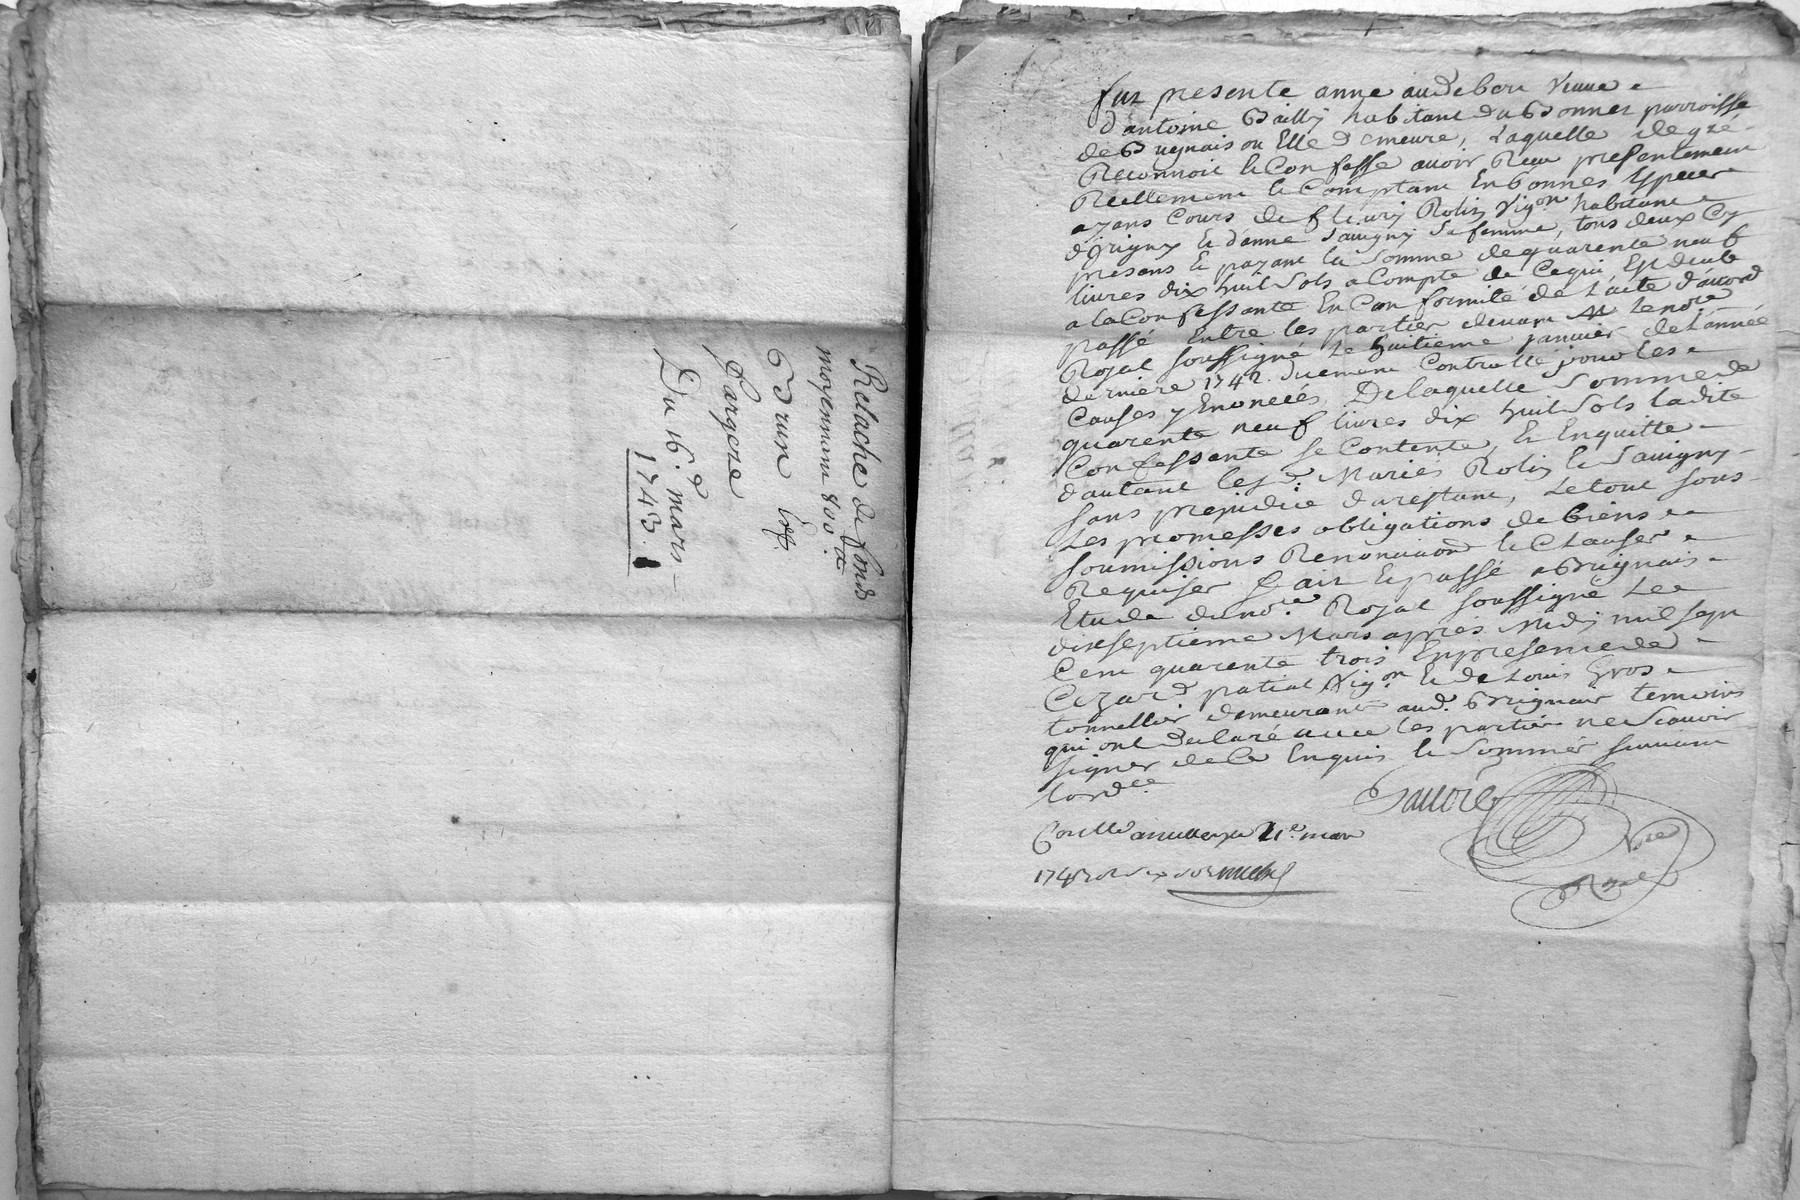 Relache de fonds
moyennant 800 ₶.
Brun
Fargere
Du 16e. mars
1743.
fut presente anne audebon veuve
d'antoine Bailly habitant du Bonnet parroisse
de Brignais ou Elle Demeure, Laquelle de gré
Reconnoit et Confesse avoir Reçu presentement
Reellement et Comptant En bonnes Especes
ayans Cours de fleury Rolin Vigon habitant
d'irigny et d'anne Savigny sa femme, tous deux Cy
presans et payant la somme de quarente neuf
livres dix huit sols a Compte de Ce qui Est deub
a la Confessante En Conformité de L'acte d'acord
passé Entre les parties devant Me Le nore
Royal soussigné Le huitieme janvier de L'année
derniere 1742. duement Controllé pour les
Causes y Enoncéés, De laquelle somme de
quarente neuf livres dix huit sols Ladite
Confessante se Contente, et Enquitte
d'autant les d. Mariés Rolin et Savigny
sans prejudice du restant, Le tout sous
Les promesses obligations de biens
soumissions Renonciaons et Clauses
Requises fait et passé a Brignais
Etude du nore. Royal soussigné Le
dixseptieme Mars apres Midy mil sept
Cent quarente trois En presence de
Cezard patiat Vigon et de Louis Gros
tonnellier demeurant aud. Brignais temoins
qui ont declaré avec les parties ne scavoir
signer de Ce Enquis et sommés suivant
lordce.
Nore
Royal
Conllé 21e. mars